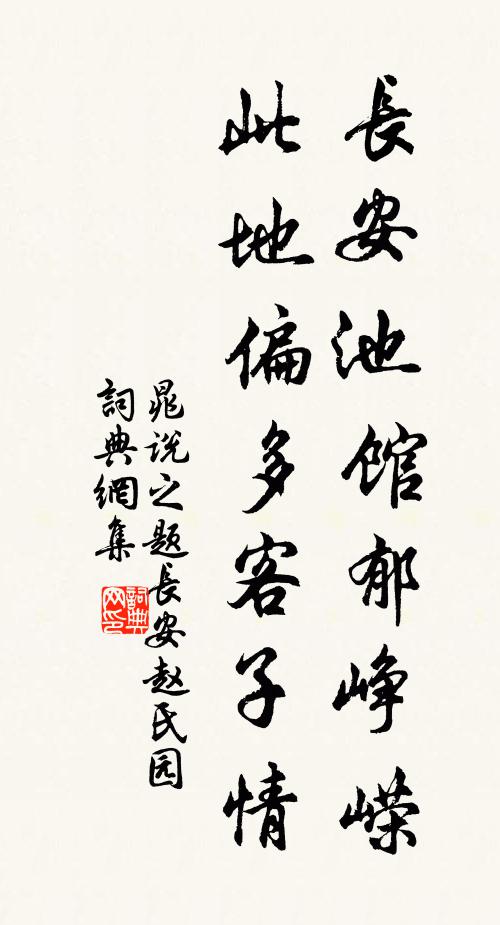 長安池館郁崢嶸
此地偏多客子情
晁説之題長安赵氏园
詞典網集
詞典
网印